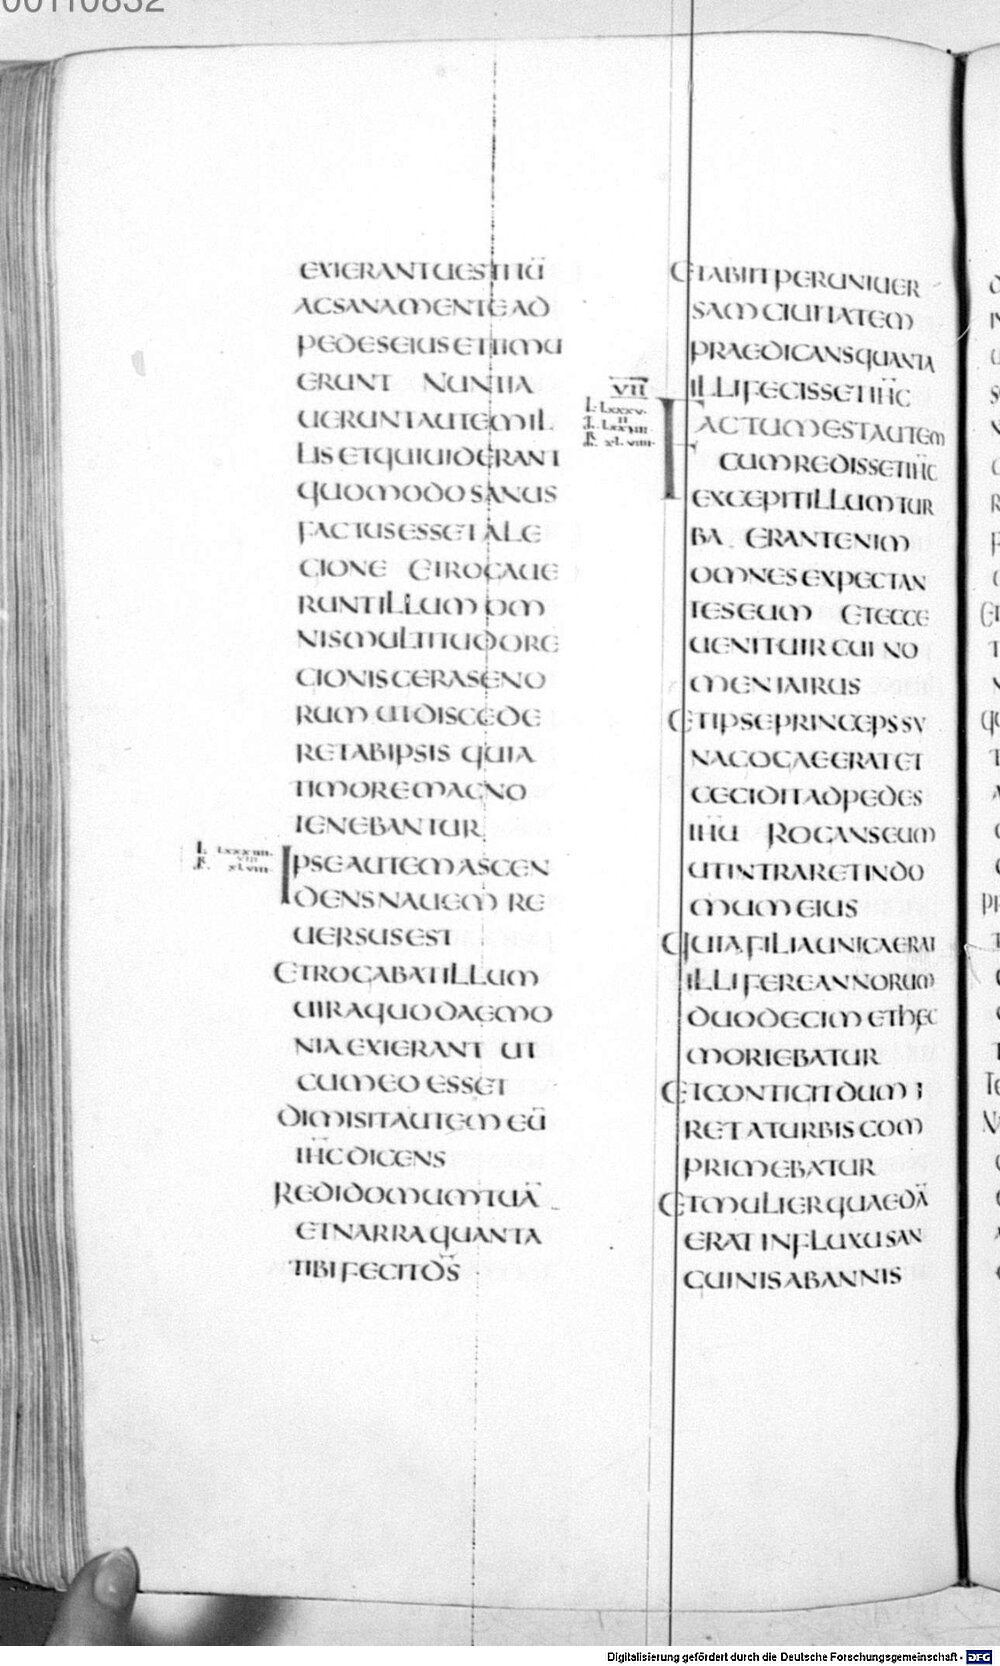 00110832
EXIERANT UESTITŪ
AC SANA MENTE AD
PEDES EIUS ET TIMU
ERUNT NUNTIA
UERUNT AUTEM IL
LIS ET QUI UIDERANT
QUOMODO SANUS
FACTUS ESSET A LE
GIONE ET ROGAUE
RUNT ILLUM OM
NIS MULTITUDO RE
GIONIS GERASENO
RUM UT DISCEDE
RET AB IPSIS QUIA
TIMORE MAGNO
TENEBANTUR
L. LXXXIIII.
VIII
R. XLVIII.
IPSE AUTEM ASCEN
DENS NAUEM RE
UERSUS EST
ET ROGABAT ILLUM
UIR A QUO DAEMO
NIA EXIERANT UT
CUM EO ESSET
DIMISIT AUTEM EŪ
IHC̄ DICENS
REDI DOMUM TUĀ
ET NARRA QUANTA
TIBI FECIT D̄S
ET ABIIT PER UNIUER
SAM CIUITATEM
PRAEDICANS QUANTA
ILLI FECISSET IHC̄
VII
L. LXXXV.
II
I. LXXIIII.
R. XLVIIII.
FACTUM EST AUTEM
CUM REDISSET IHC̄
EXCEPIT ILLUM TUR
BA. ERANT ENIM
OMNES EXPECTAN
TES EUM ET ECCE
UENIT UIR CUI NO
MEN IAIRUS
ET IPSE PRINCEPS SY
NAGOGAE ERAT ET
CECIDIT AD PEDES
IHŪ ROGANS EUM
UT INTRARET IN DO
MUM EIUS
QUIA FILIA UNICA ERAT
ILLI FERE ANNORUM
DUODECIM ET HAEC
MORIEBATUR
ET CONTIGIT DUM I
RET A TURBIS COM
PRIMEBATUR
ET MULIER QUAEDĀ
ERAT IN FLUXU SAN
GUINIS AB ANNIS
Digitalisierung gefördert durch die Deutsche Forschungsgemeinschaft - DFG